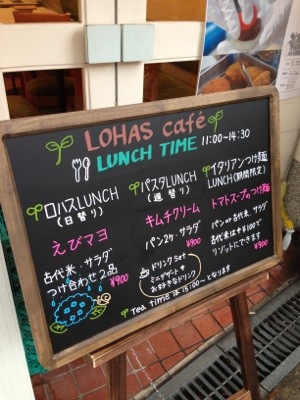 LOHAS café
LUNCH TIME 11:00~14:30
ロハスLUNCH
(日替り)
えびマヨ
古代米、サラダ
つけ合わせ2品
¥900
パスタLUNCH
(週替り)
キムチクリーム
パン2ケ、サラダ
¥900
ドリンクSet
ミニデザート
お好きなドリンク
イタリアンつけ麺
LUNCH(期間限定)
トマトスープのつけ麺
パンか古代米、サラダ
古代米は+¥100で
リゾットにできます
¥900
Tea timeは15:00~となります